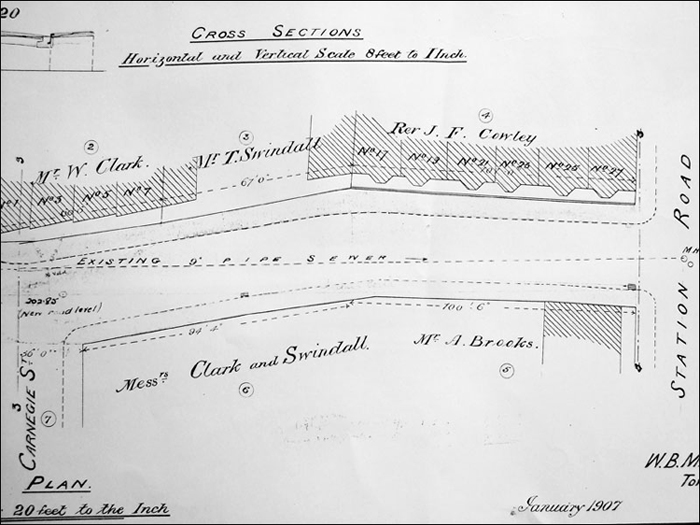 20
CROSS SECTIONS
Horizontal and Vertical Scale 8 feet to 1 Inch.
2
3
4
Mr. W. Clark.
Mr. T. Swindall
Rev J. F. Cowley
No 1
No 3
No 5
No 7
67'0"
No 17
No 19
No 21
No 23
No 25
No 27
3
EXISTING 9" PIPE SEWER
MH
STATION ROAD
202.85
(New road level)
94'4"
100'6"
Messrs Clark and Swindall.
Mr A. Brooks.
6
5
3
CARNEGIE ST
7
PLAN.
20 feet to the Inch
W.B.M
January 1907